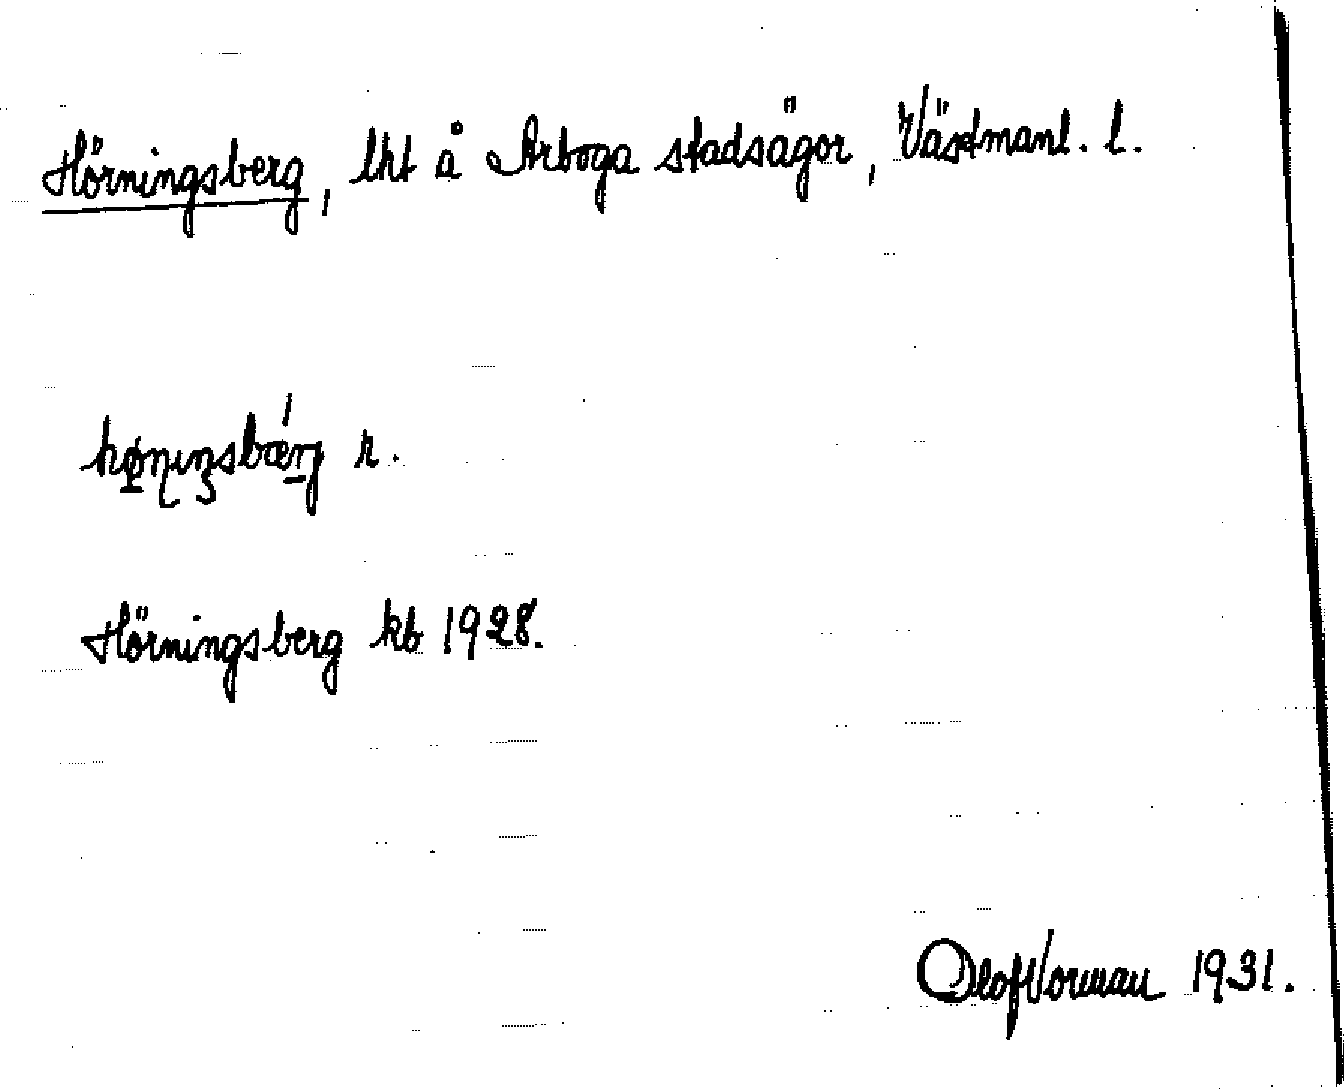 Hörningsberg, lht å Arboga stadsägor, Västmanl. l.
hø̱ɳıŋsbǽ̱rj r.
Hörningsberg kb 1928.
Olof Vorman 1931.